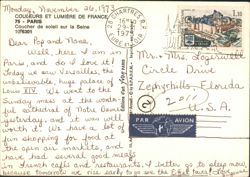 Monday, November 26, 1973
COULEURS ET LUMIÈRE DE FRANCE
75 - PARIS
Coucher de soleil sur la Seine
Dear Pop and Nana,
Well, here I am in
Paris, and do I love it!
Today we saw Versailles, the
unbelievable, huge palace of
Louis XIV. We went to the
Sunday mass at the wonder-
ful cathedral of Notre Dame
yesterday, and it was well
worth it. We have a lot of
fun shopping for food at
the open air markets, and
have had several good meals
in French cafes and restaurants. I better go to sleep now,
because tomorrow we rise early to go see the Eiffel Tower!
Mr. + Mrs. Logerwell
Circle Drive
Zephyrhills, Florida
U.S.A.
PAR AVION